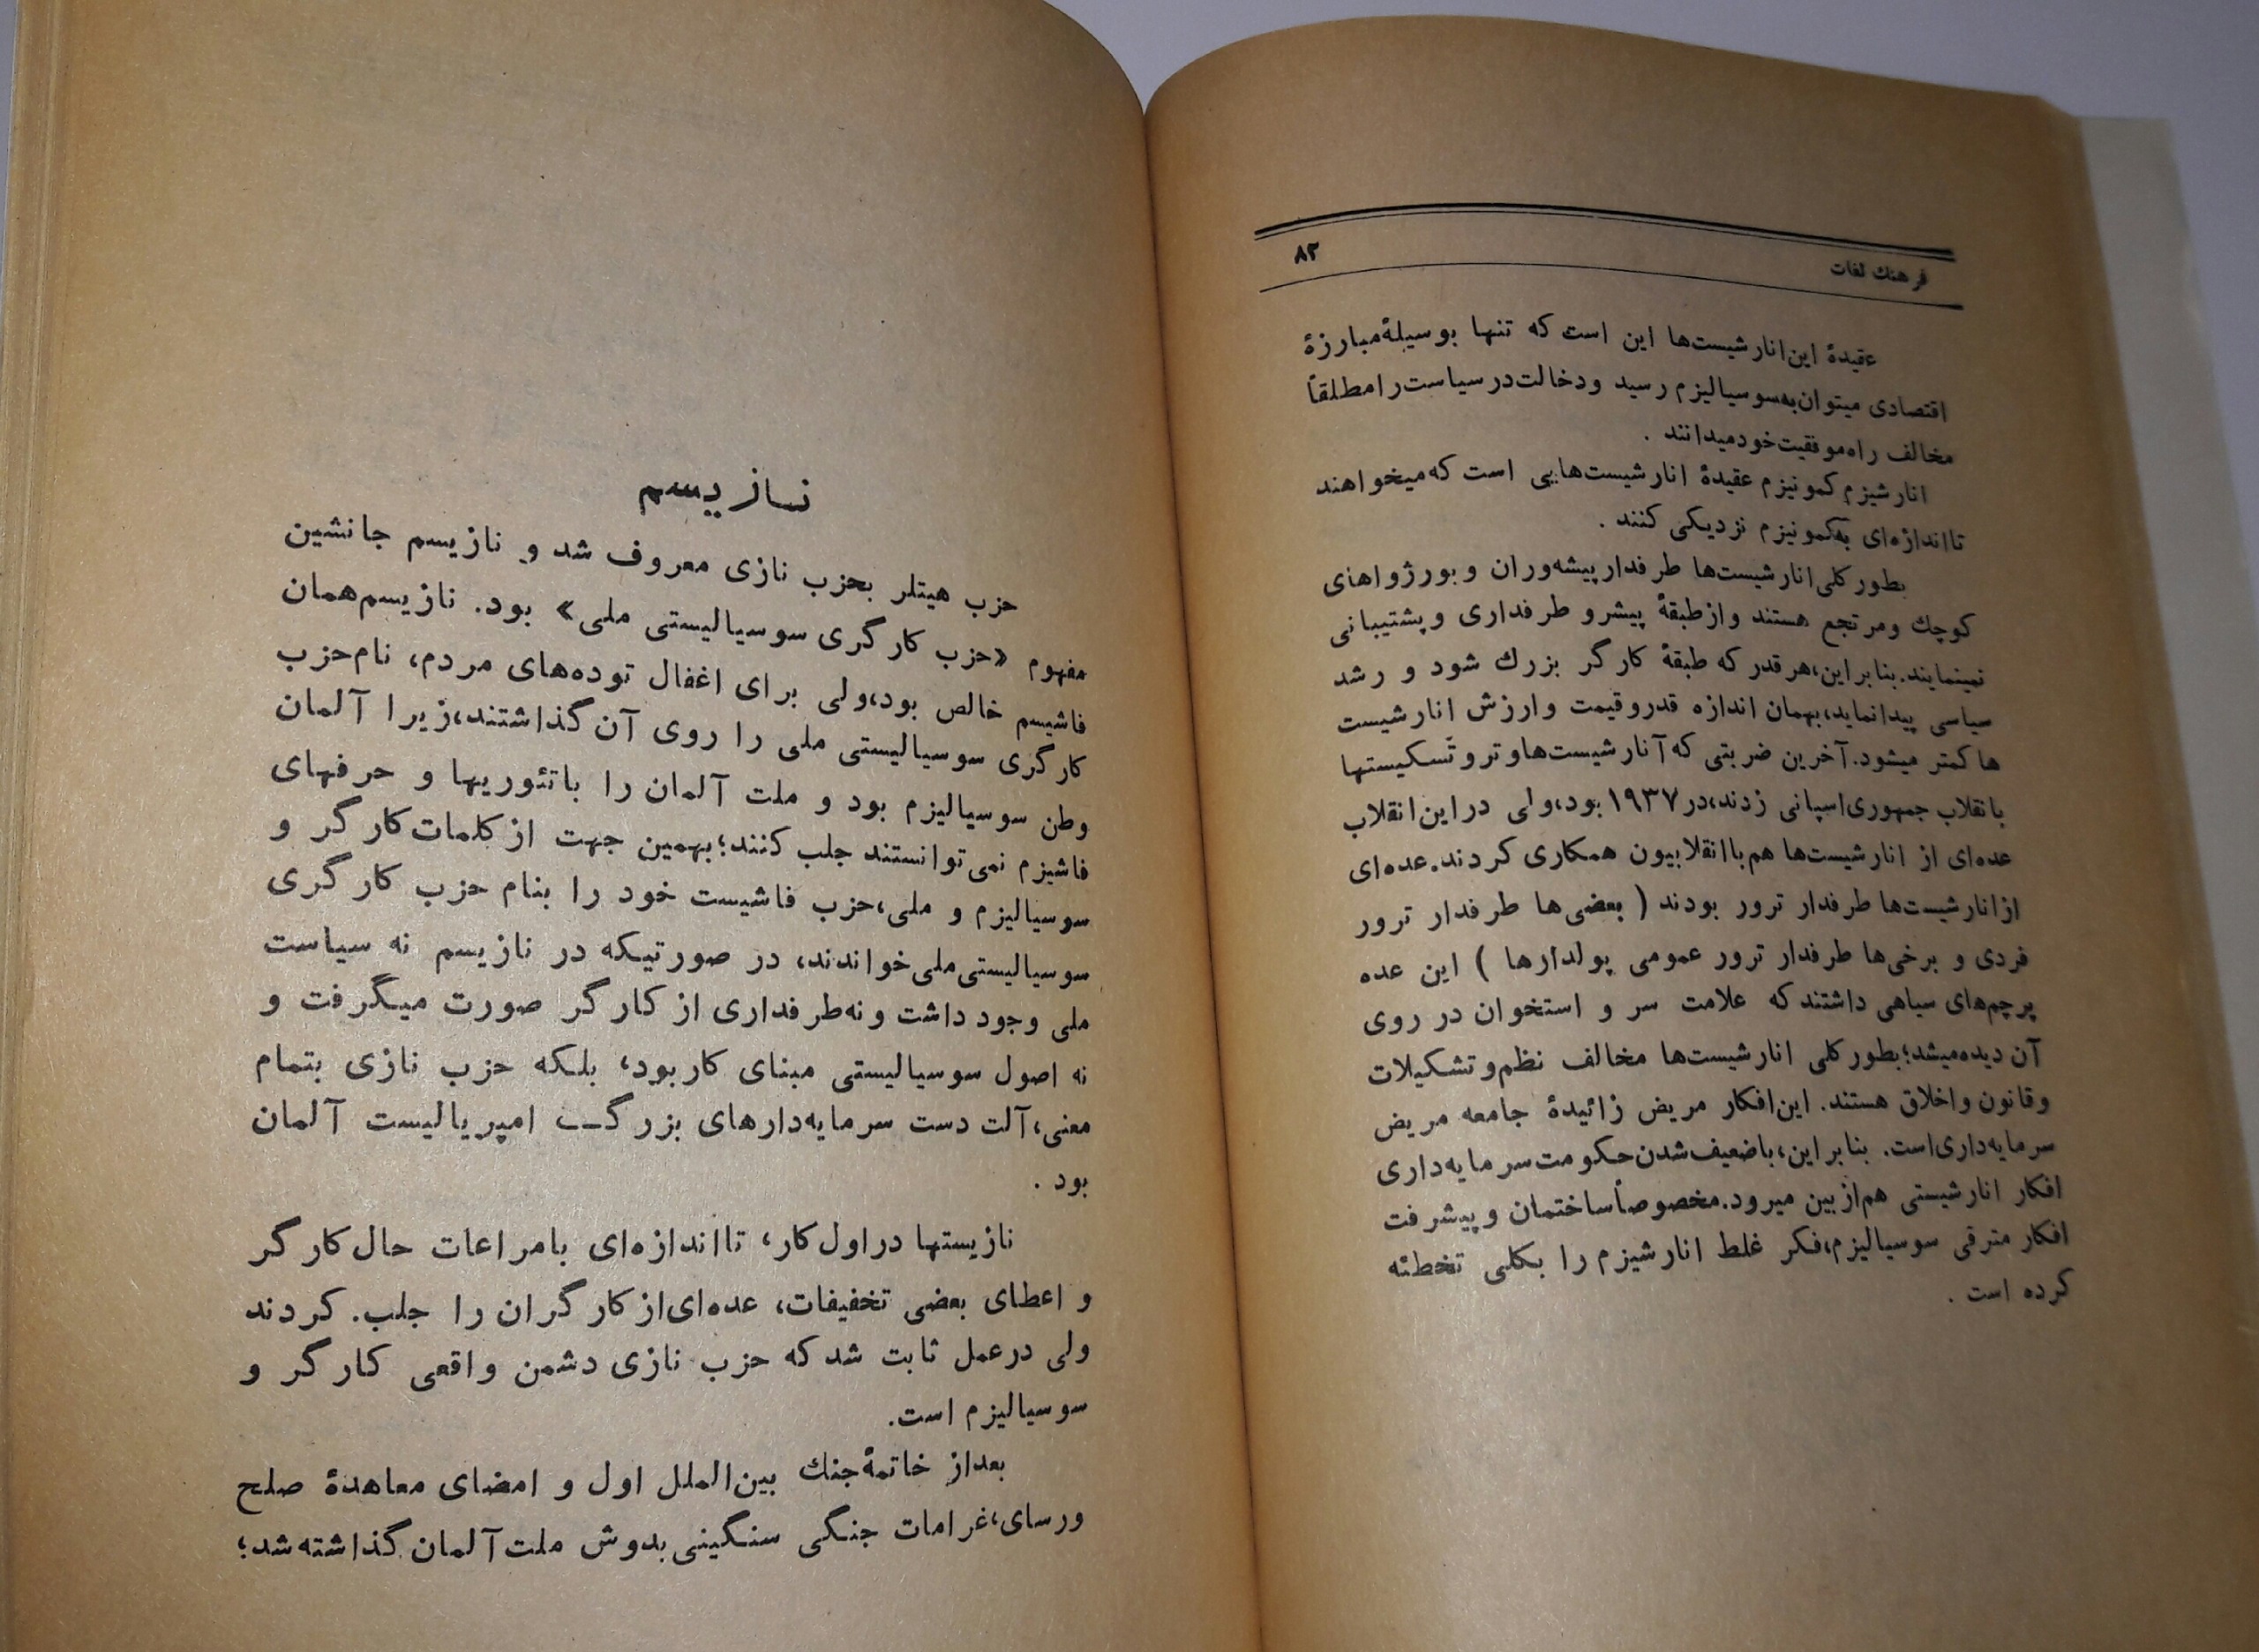 فرهنك لغات ۸۲
عقیدهٔ این انارشیست‌ها این است که تنها بوسیلهٔ مبارزهٔ
اقتصادی میتوان به سوسیالیزم رسید و دخالت در سیاست را مطلقاً
مخالف راه موفقیت خود میدانند .
انارشیزم کمونیزم عقیدهٔ انارشیست‌هایی است که میخواهند
تا اندازه‌ای به کمونیزم نزدیکی کنند .
بطور کلی انارشیست‌ها طرفدار پیشه‌وران و بورژواهای
کوچك و مرتجع هستند و از طبقهٔ پیشرو طرفداری و پشتیبانی
نمینمایند. بنابراین، هر قدر که طبقهٔ کارگر بزرك شود و رشد
سیاسی پیدا نماید، بهمان اندازه قدر و قیمت و ارزش انارشیست
ها کمتر میشود. آخرین ضربتی که آنارشیست‌ها و تروتسکیستها
بانقلاب جمهوری اسپانی زدند، در ۱۹۳۷ بود، ولی در این انقلاب
عده‌ای از انارشیست‌ها هم با انقلابیون همکاری کردند. عده‌ای
از انارشیست‌ها طرفدار ترور بودند ( بعضی‌ها طرفدار ترور
فردی و برخی‌ها طرفدار ترور عمومی پولدارها ) این عده
پرچم‌های سیاهی داشتند که علامت سر و استخوان در روی
آن دیده میشد؛ بطور کلی انارشیست‌ها مخالف نظم و تشکیلات
و قانون و اخلاق هستند. این افکار مریض زائیدهٔ جامعه مریض
سرمایه‌داری است. بنابراین، با ضعیف شدن حکومت سرمایه‌داری
افکار انارشیستی هم از بین میرود. مخصوصاً ساختمان و پیشرفت
افکار مترقی سوسیالیزم، فکر غلط انارشیزم را بکلی تخطئه
کرده است .
نازیسم
حزب هیتلر بحزب نازی معروف شد و نازیسم جانشین
مفهوم «حزب کارگری سوسیالیستی ملی» بود. نازیسم همان
فاشیسم خالص بود، ولی برای اغفال توده‌های مردم، نام حزب
کارگری سوسیالیستی ملی را روی آن گذاشتند، زیرا آلمان
وطن سوسیالیزم بود و ملت آلمان را با تئوریها و حرفهای
فاشیزم نمی‌توانستند جلب کنند؛ بهمین جهت از کلمات کارگر و
سوسیالیزم و ملی، حزب فاشیست خود را بنام حزب کارگری
سوسیالیستی ملی خواندند، در صورتیکه در نازیسم نه سیاست
ملی وجود داشت و نه طرفداری از کارگر صورت میگرفت و
نه اصول سوسیالیستی مبنای کار بود، بلکه حزب نازی بتمام
معنی، آلت دست سرمایه‌دارهای بزرگ امپریالیست آلمان
بود .
نازیستها در اول کار، تا اندازه‌ای با مراعات حال کارگر
و اعطای بعضی تخفیفات، عده‌ای از کارگران را جلب. کردند
ولی در عمل ثابت شد که حزب نازی دشمن واقعی کارگر و
سوسیالیزم است.
بعد از خاتمهٔ جنك بین‌الملل اول و امضای معاهدهٔ صلح
ورسای، غرامات جنگی سنگینی بدوش ملت آلمان گذاشته شد؛